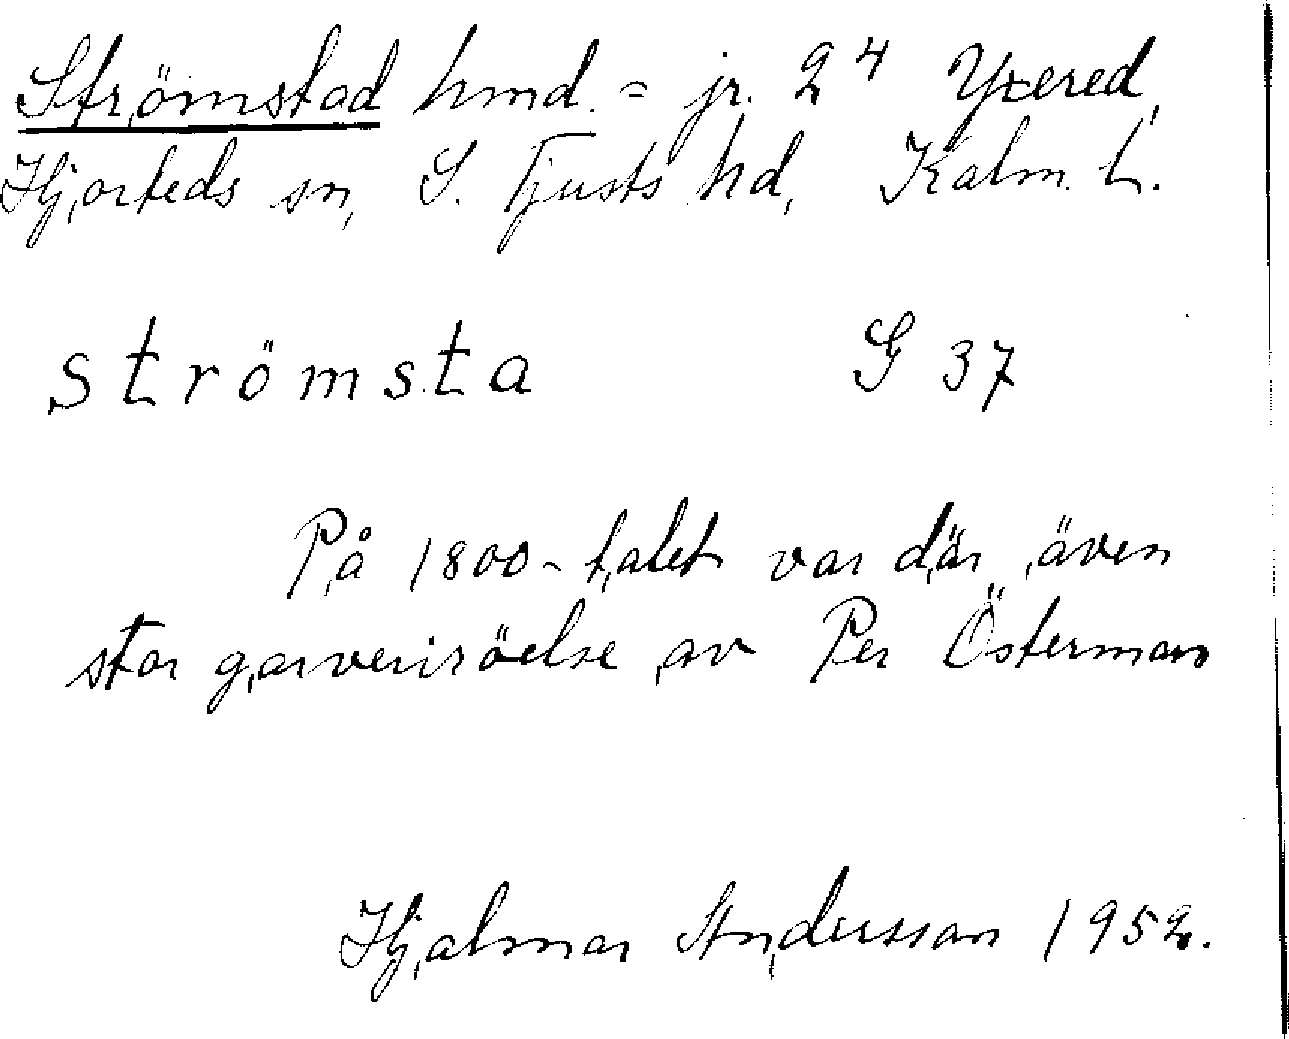 Strömstad hmd. = jr. 2⁴ Yxered,
Hjorteds sn, S. Tjusts hd, Kalm. L.
strömsta G 37
På 1800-talet var där även
stor garverirörelse av Per Österman
Hjalmar Andersson 1952.